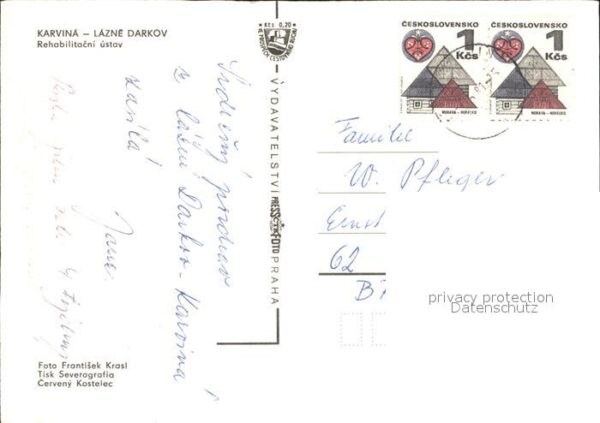 KARVINÁ — LÁZNĚ DARKOV
Rehabilitační ústav
Kčs 0,20
VE PROSPĚCH CESTOVNÍHO RUCHU
Srdečný pozdrav
z lázní Darkov-Karviná
zasílá
Jana
VYDAVATELSTVÍ PRESSFOTO PRAHA
ČESKOSLOVENSKO
1
Kčs
MORAVA - HORÁCKO
ČESKOSLOVENSKO
1
Kčs
MORAVA - HORÁCKO
Familie
W. Pfleger
Ernst
62
B
privacy protection
Datenschutz
Foto František Krasl
Tisk Severografia
Červený Kostelec